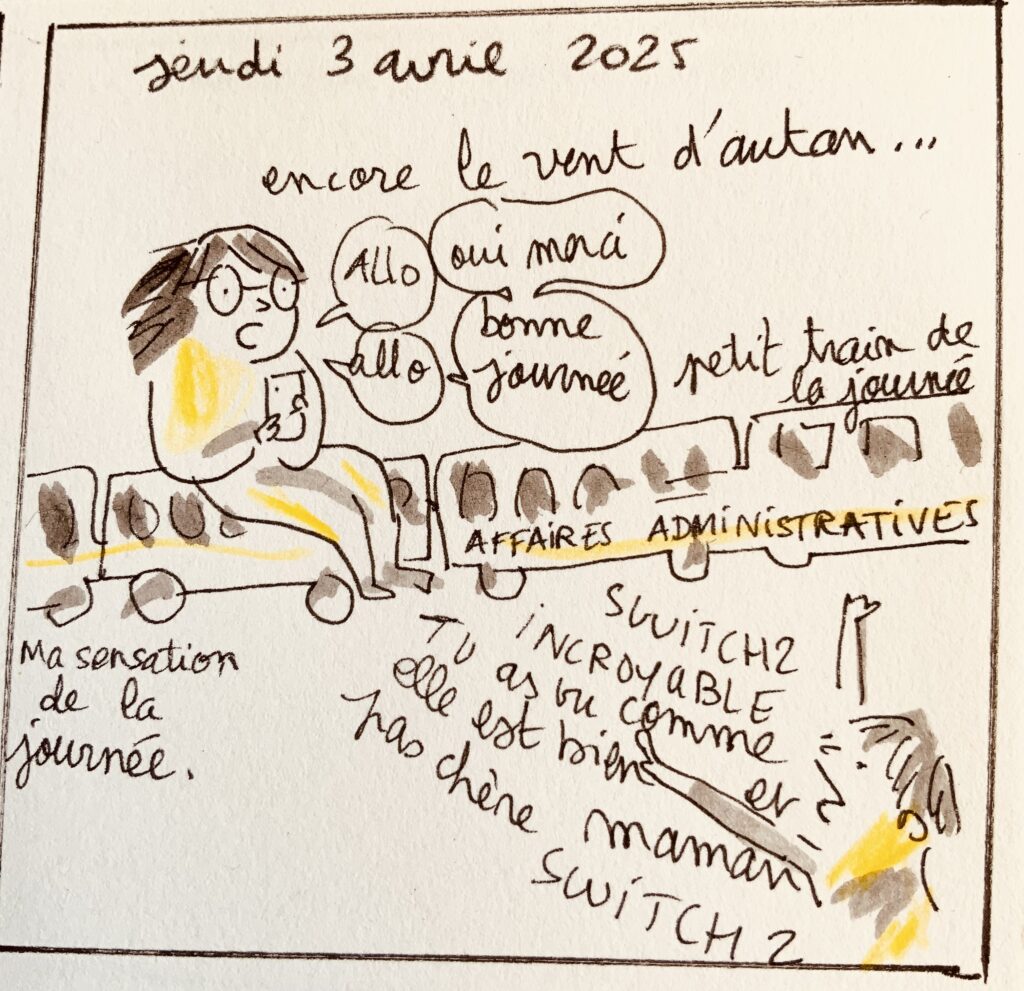 jeudi 3 avril 2025
encore le vent d'autan...
Allo
oui merci
allo
bonne
journeé
petit train de
la journeé
AFFAIRES ADMINISTRATIVES
Ma sensation
de la
journée.
SWITCH2
iNCROYABLE
TU as vu comme
elle est bien et
pas chère maman
SWITCH 2